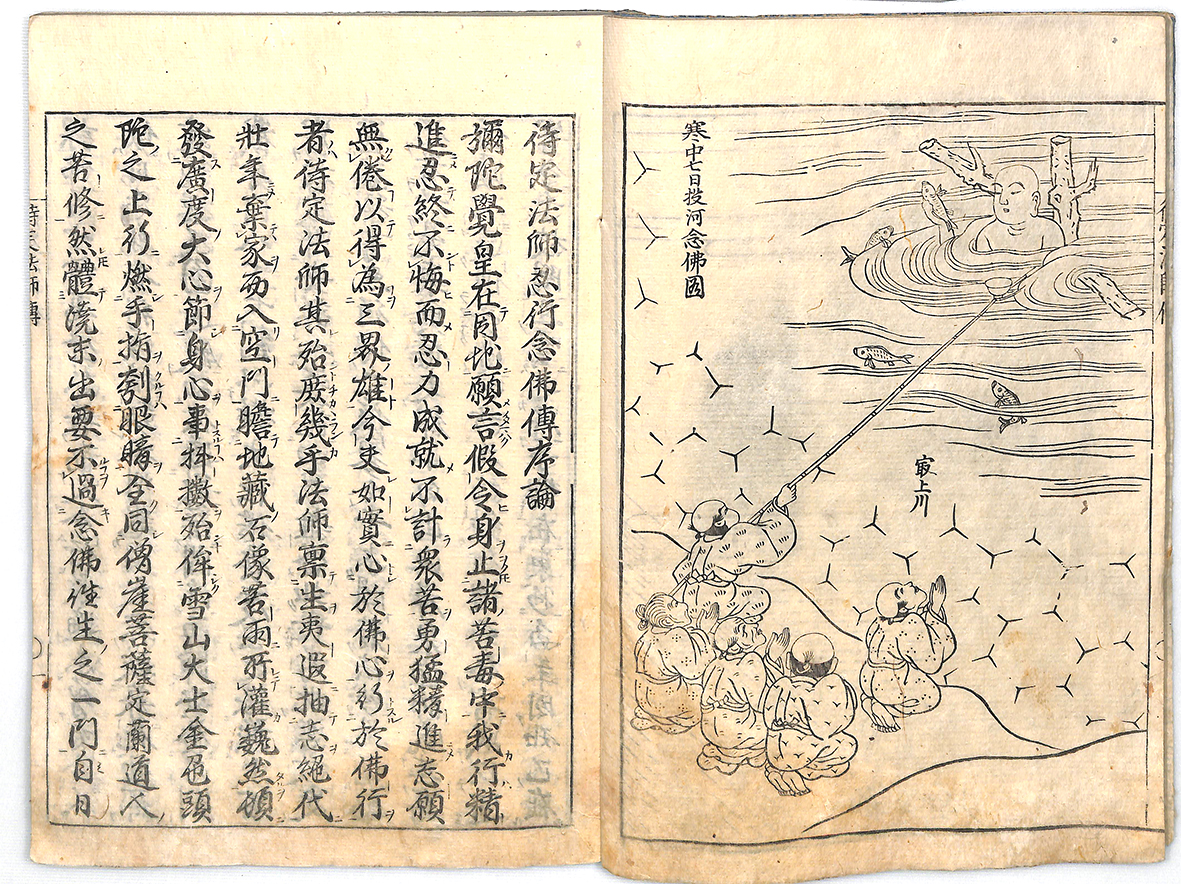 寒中七日投河念佛圖
㝡上川
待定法師忍行念佛傳序論
彌陀覺皇在因地願言假令身止諸苦毒中我行精
進忍終不悔而忍力成就不計衆苦勇猛精進志願
無倦以得為三界雄今夫如實心於佛心行於佛行
者待定法師其殆庶幾乎法師禀生夷遐抽志絕代
壮年棄家而入空門瞻地藏石像苦雨所灌巍然頓
發廣度大心節身心事抖擻殆侔雪山大士金色頭
陀之上行燃手指刳眼睛全同僧崖菩薩定蘭道人
之苦修然體澆末出要不過念佛往生之一門自日
待定法師傳